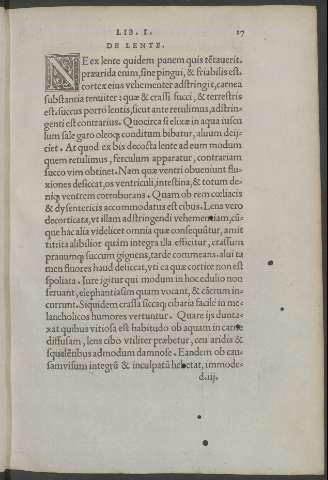 LIB. I. 17
DE LENTE.
NE ex lente quidem panem quis tētauerit.
præarida enim, sine pingui, & friabilis est.
cortex eius vehementer adstringit, carnea
substantia tenuiter: quæ & crassi succi, & terrestris
est. succus porrò lentis, sicut ante retulimus, adstrin-
genti est contrarius. Quocirca si elixæ in aqua iuscu
lum sale garo oleoq; conditum bibatur, aluum deij-
ciet. At quod ex bis decocta lente ad eum modum
quem retulimus, ferculum apparatur, contrariam
succo vim obtinet. Nam quæ ventri obueniunt flu-
xiones desiccat, os ventriculi, intestina, & totum de-
niq; ventrem corroborans. Quam ob rem cœliacis
& dysentericis accommodatus est cibus. Lens vero
decorticata, vt illam adstringendi vehementiam, cū-
que hac alia videlicet omnia quæ consequūtur, amit
tit ita alibilior quàm integra illa efficitur, crassum
prauumq; succum gignens, tarde commeans. alui ta
men fluores haud desiccat, vti ea quæ cortice non est
spoliata. Iure igitur qui modum in hoc edulio non
seruant, elephantiasim quam vocant, & cācrum in-
currunt. Siquidem crassa siccaq; cibaria facilè in me-
lancholicos humores vertuntur. Quare ijs dunta-
xat quibus vitiosa est habitudo ob aquam in carne
diffusam, lens cibo vtiliter præbetur, ceu aridis &
squalētibus admodum damnose. Eandem ob cau-
sam visum integrū & inculpatū hebetat, immode-
d.iij.